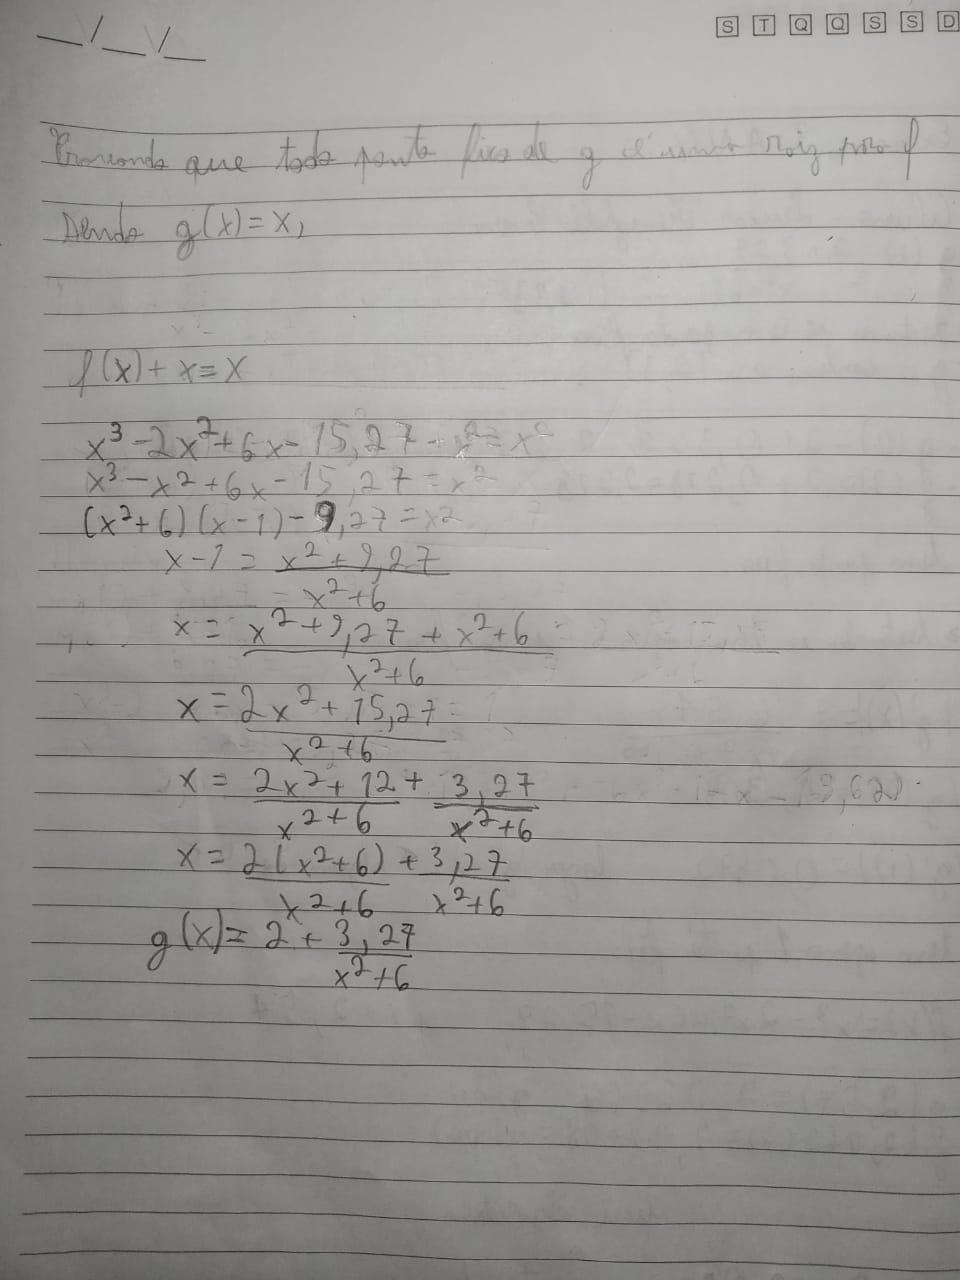 S T Q Q S S D
__/__/__
Provando que todo ponto fixo de g é uma raiz para f
Sendo g(x) = x,
f(x) + x = x
x³ - 2x² + 6x - 15,27 + x² = x²
x³ - x² + 6x - 15,27 = x²
(x² + 6) (x - 1) - 9,27 = x²
x - 1 = x² + 9,27
x² + 6
x = x² + 9,27 + x² + 6
x² + 6
x = 2x² + 15,27
x² + 6
x = 2x² + 12 + 3,27
x² + 6 x² + 6
x = 2(x² + 6) + 3,27
x² + 6 x² + 6
g(x) = 2 + 3,27
x² + 6